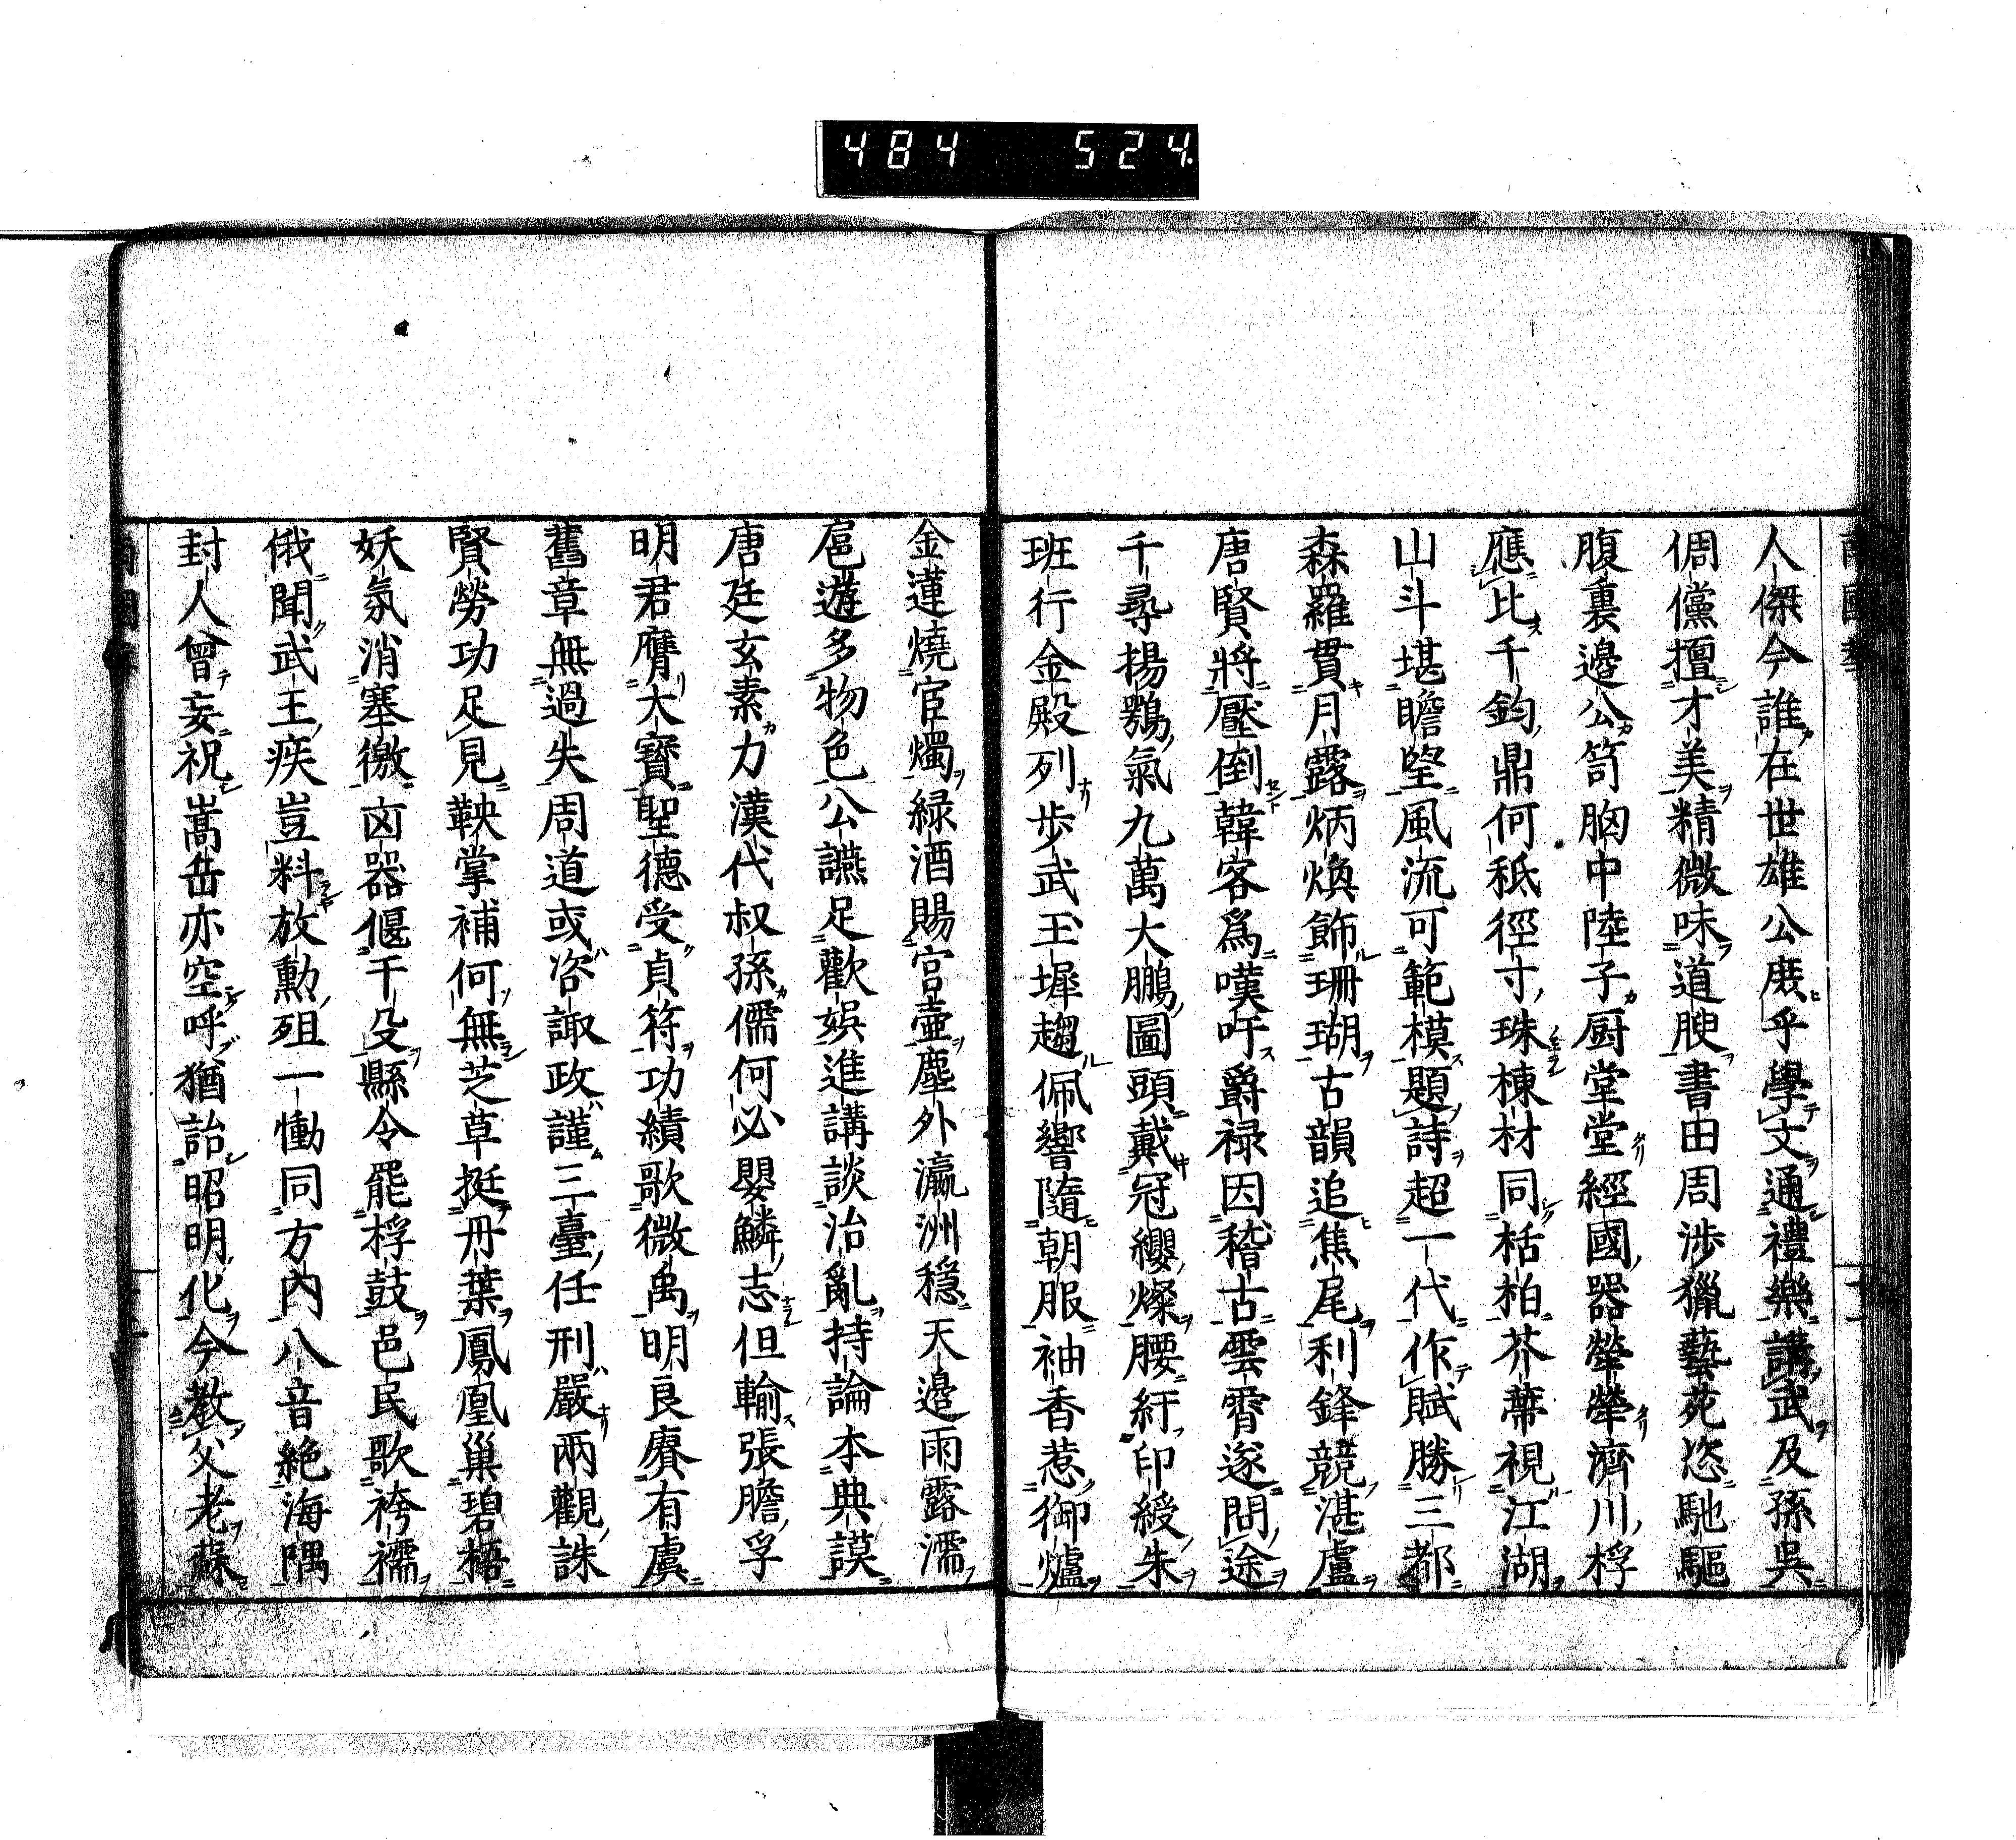 484 524
人傑今誰在世雄公庶乎學文通禮樂講武及孫吳
倜儻擅才美精微味道腴書由周涉獵藝苑恣馳驅
腹裏邊公笥胸中陸子厨堂堂經國器犖犖濟川桴
應比千鈞鼎何秖徑寸珠棟材同栝柏芥蔕視江湖
山斗堪瞻望風流可範模題詩超一代作賦勝三都
森羅貫月露炳煥飾珊瑚古韻追焦尾利鋒競湛盧
唐賢將壓倒韓客爲嘆吁爵禄因稽古雲霄遂問途
千尋揚鶚氣九萬大鵬圖頭戴冠纓燦腰紆印綬朱
班行金殿列步武玉墀趨佩響隨朝服袖香惹御爐
金蓮燒官燭緑酒賜宮壷塵外瀛洲穩天邊雨露濡
扈遊多物色公讌足歡娯進講談治亂持論本典謨
唐廷玄素力漢代叔孫儒何必嬰鱗志但輸張膽孚
明君膺大寶聖德受貞符功績歌微禹明良賡有虞
舊章無過失周道或咨諏政謹三臺任刑嚴兩觀誅
賢勞功足見鞅掌補何無芝草挺丹葉鳳凰巢碧梧
妖氛消塞徼凶器偃干殳縣令罷桴鼓邑民歌袴襦
俄聞武王疾豈料放勲殂一慟同方內八音絶海隅
封人曾妄祝嵩岳亦空呼猶詒昭明化今教父老蘇